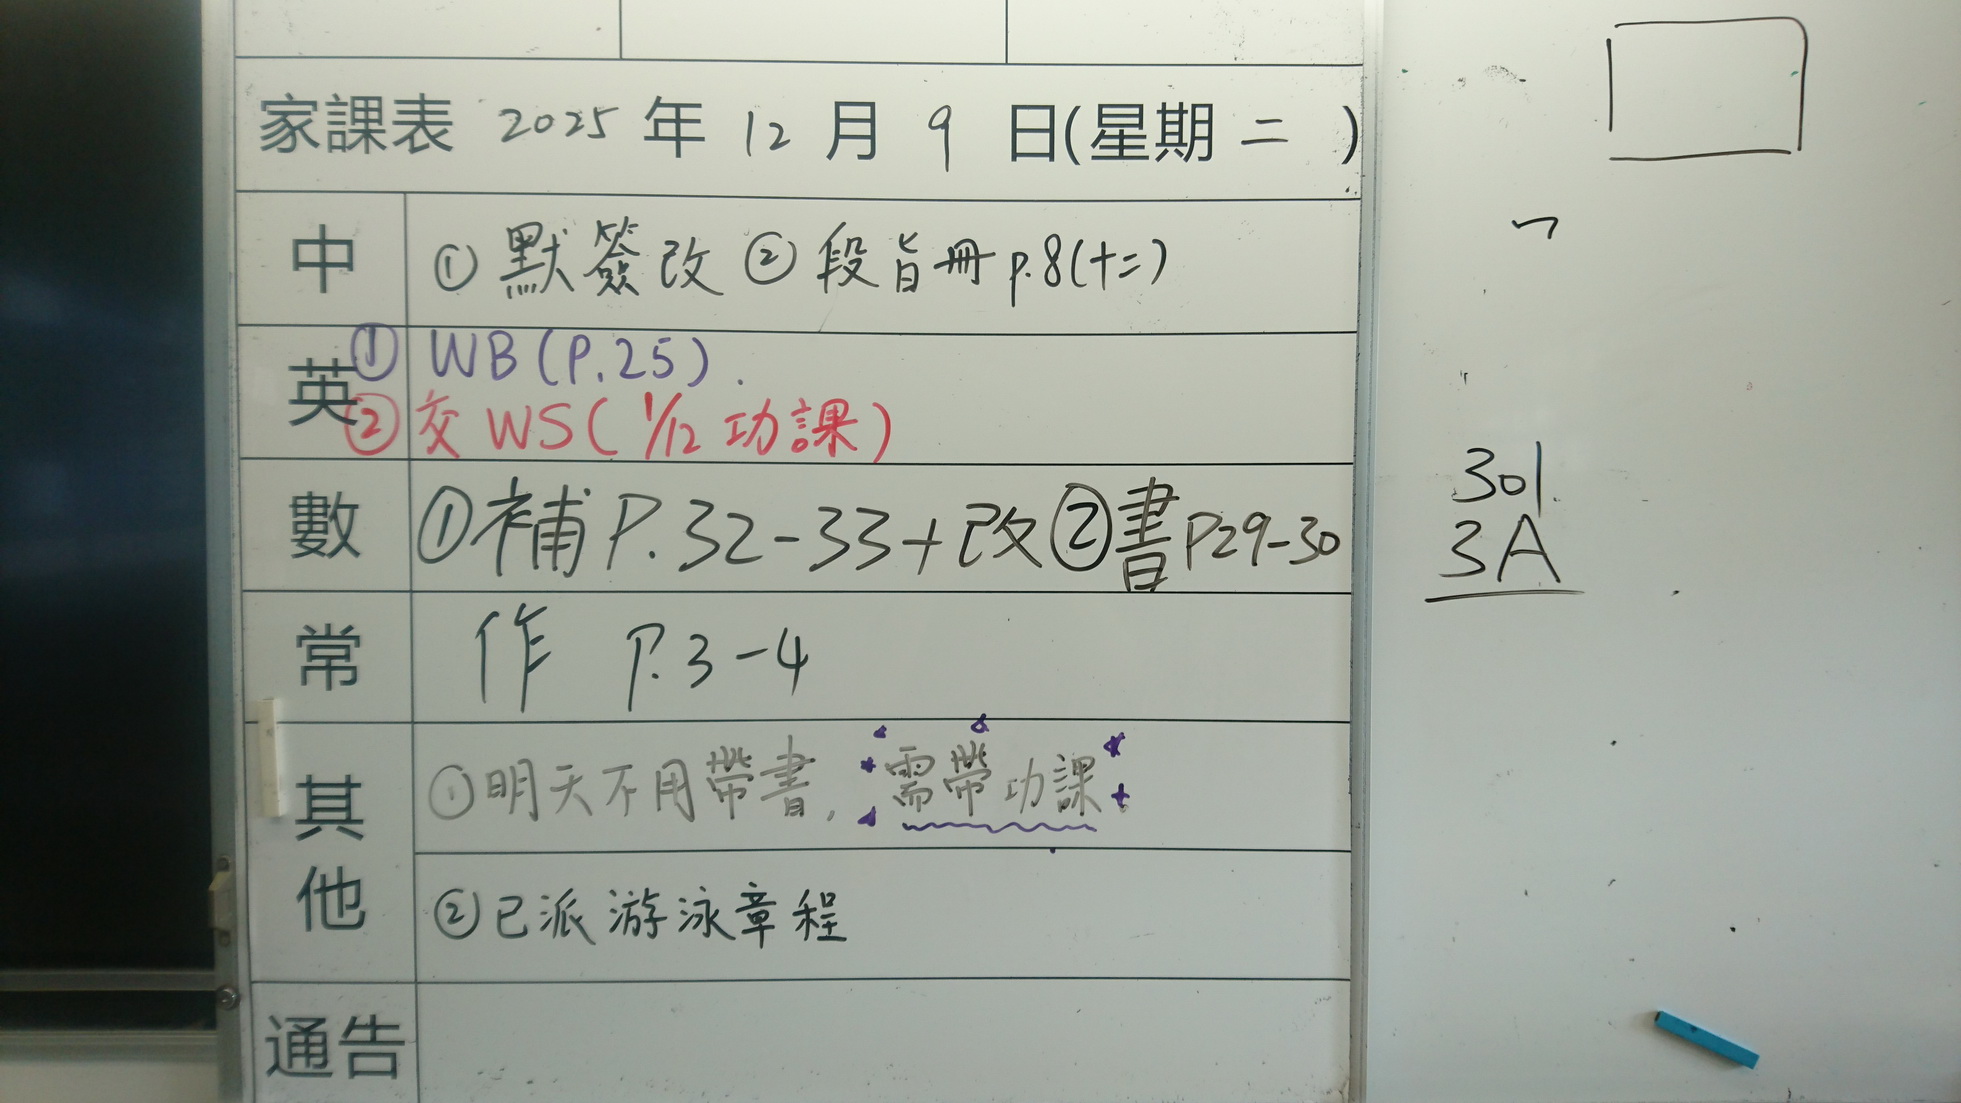 家課表 2025 年 12 月 9 日(星期 二 )
中 ① 默簽改 ② 段旨冊 p.8(十二)
英 ① WB (P.25).
② 交 WS ( 1/12 功課)
數 ① 補 P.32-33+改 ② 書 P29-30
常 作 P.3-4
其他 ① 明天不用帶書, 需帶功課
② 已派游泳章程
通告
301
3A